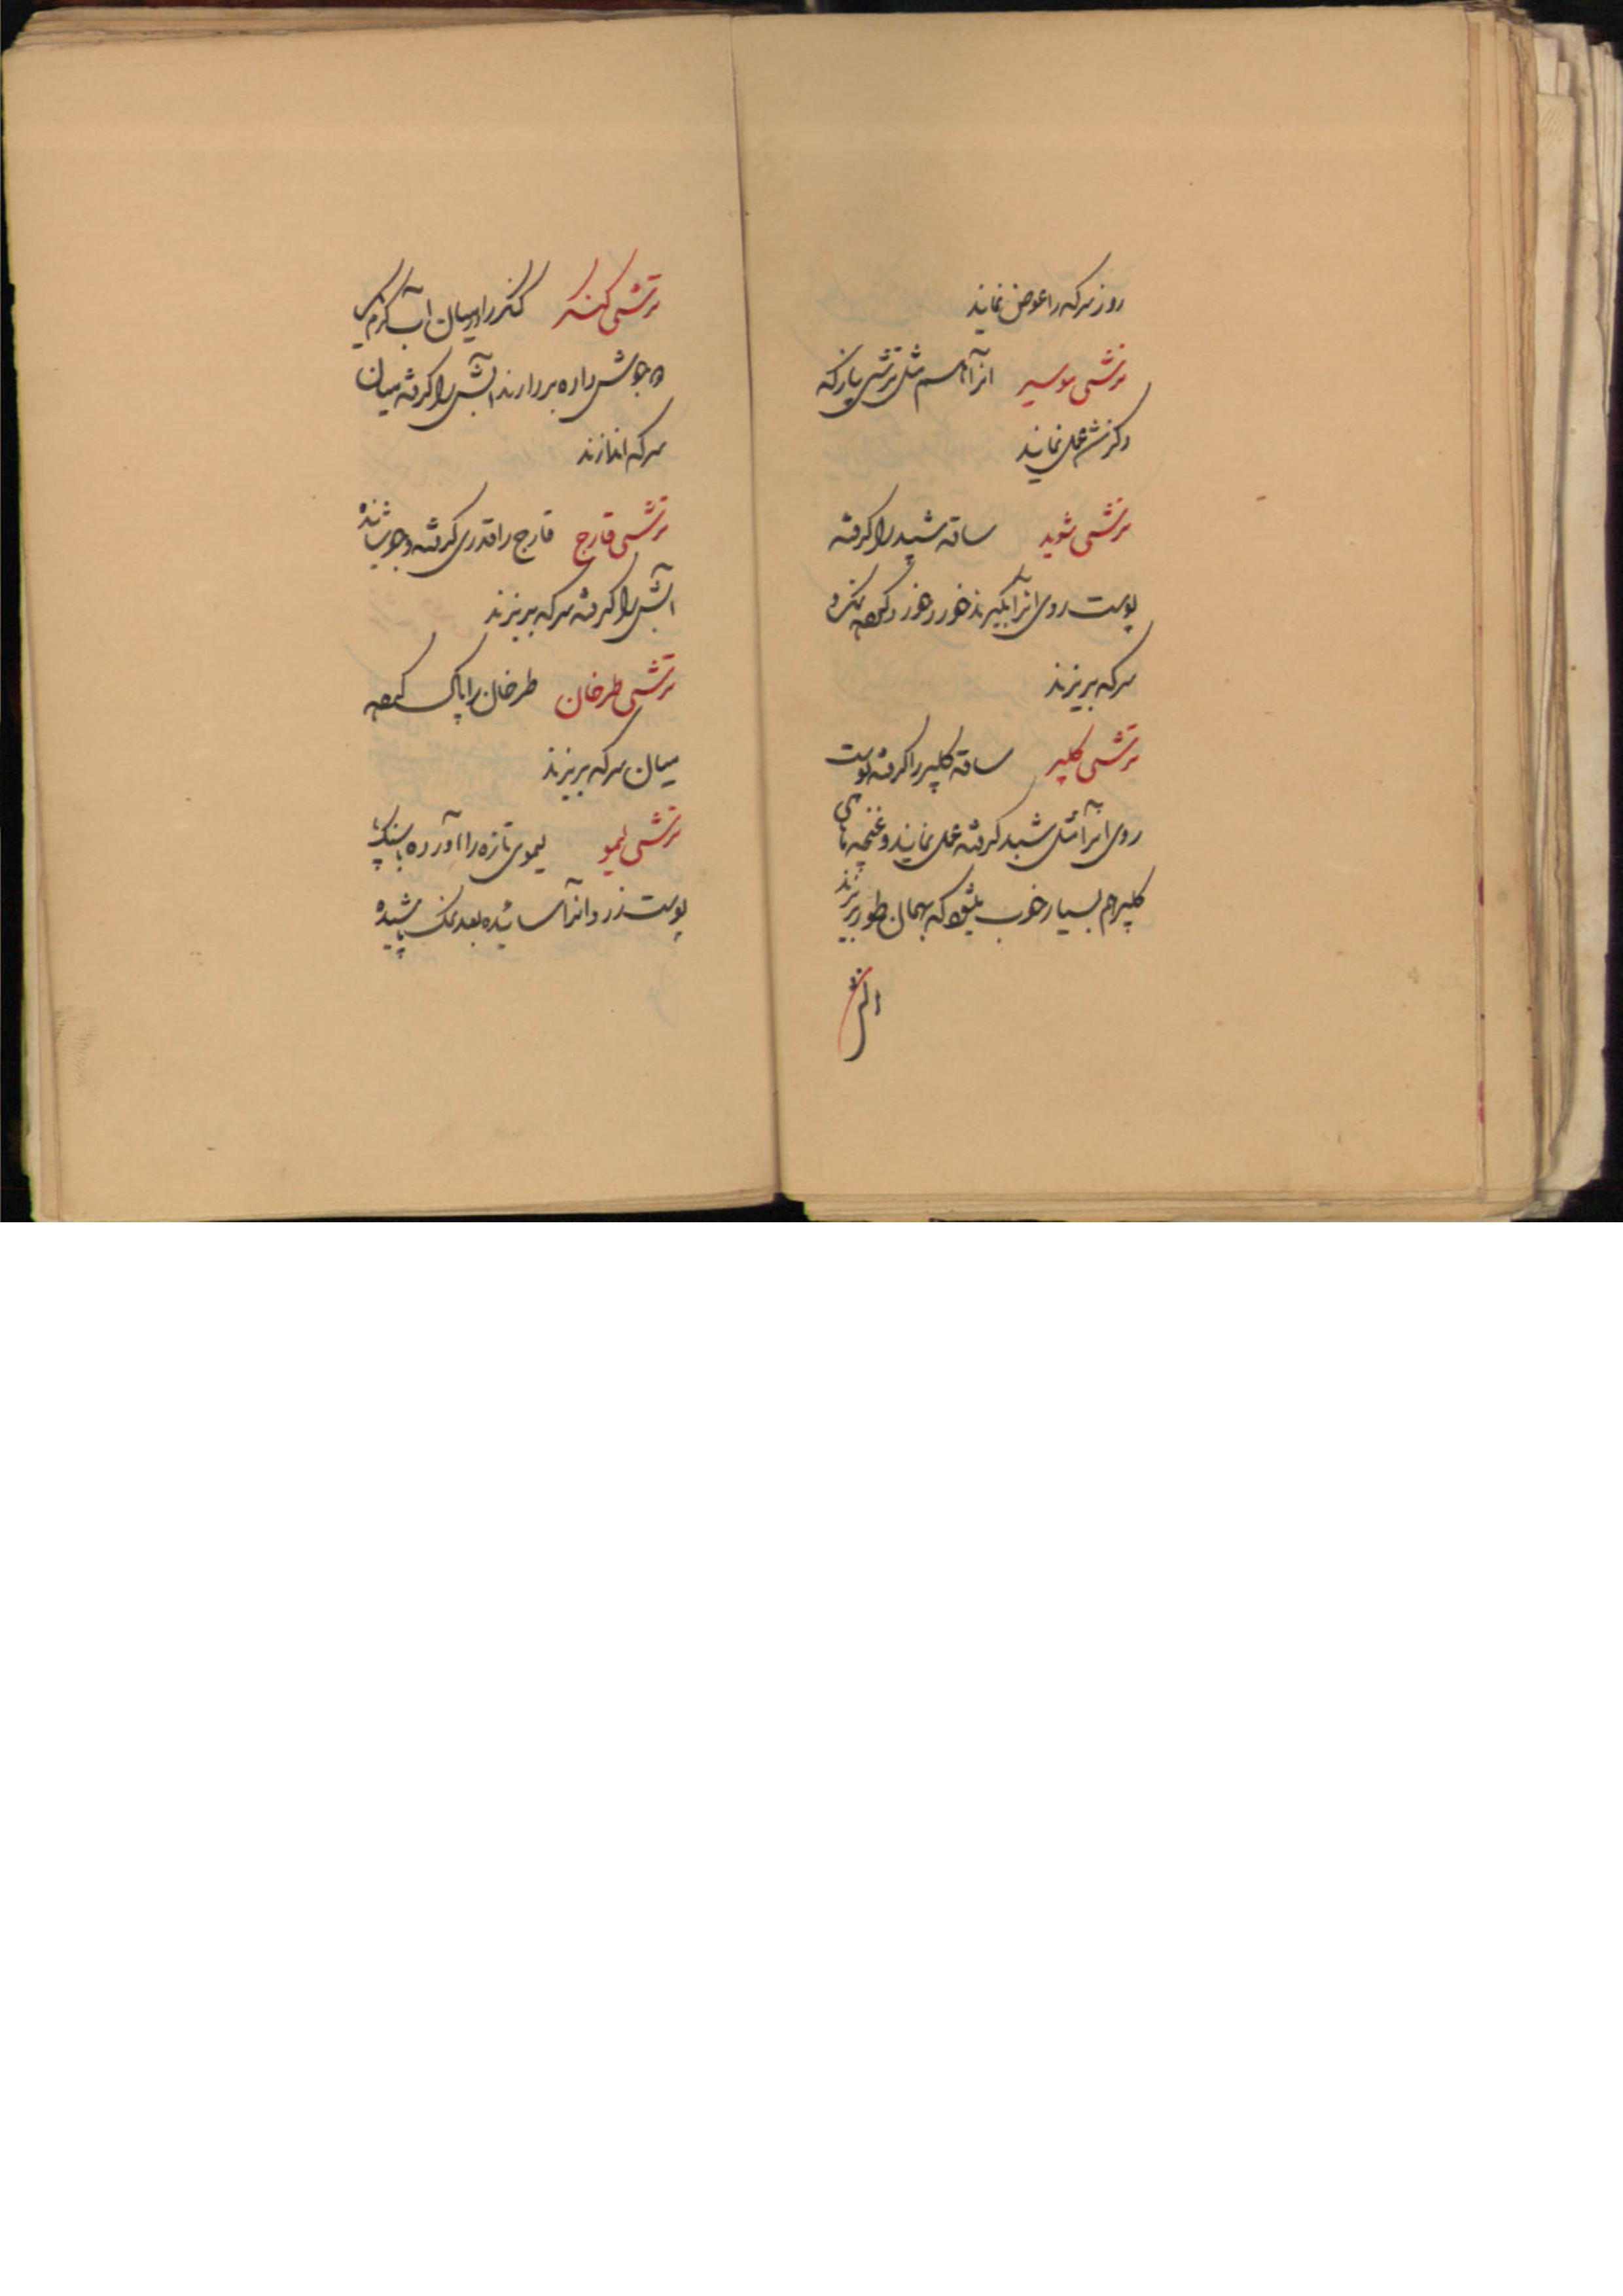 روز سرکه را عوض نمایند
ترشی موسیر انرا هم مثل ترشی پیاز که
ذکر شد عمل نمایند
ترشی شوید ساقه شبد را گرفته
پوست روی انرا بگیرند خورد خورد کرده نمک و
سرکه بریزند
ترشی کلپر ساقه کلپر را گرفته پوست
روی انرا مثل شبد گرفته عمل نمایند و غنچه های
کلپر هم بسیار خوب میشود که بهمان طور بریزند
ترشی کنگر کنگر را در میان آب گرم
جوش داده بردارند آبش را گرفته میان
سرکه اندازند
ترشی قارج قارج را قدری گرفته و جوشانده
آبش را گرفته سرکه بریزند
ترشی طرخان طرخان را پاک کرده
میان سرکه بریزند
ترشی لیمو لیموی تازه را آورده با سنک پا
پوست زرد انرا سائیده بعد نمک پاشیده